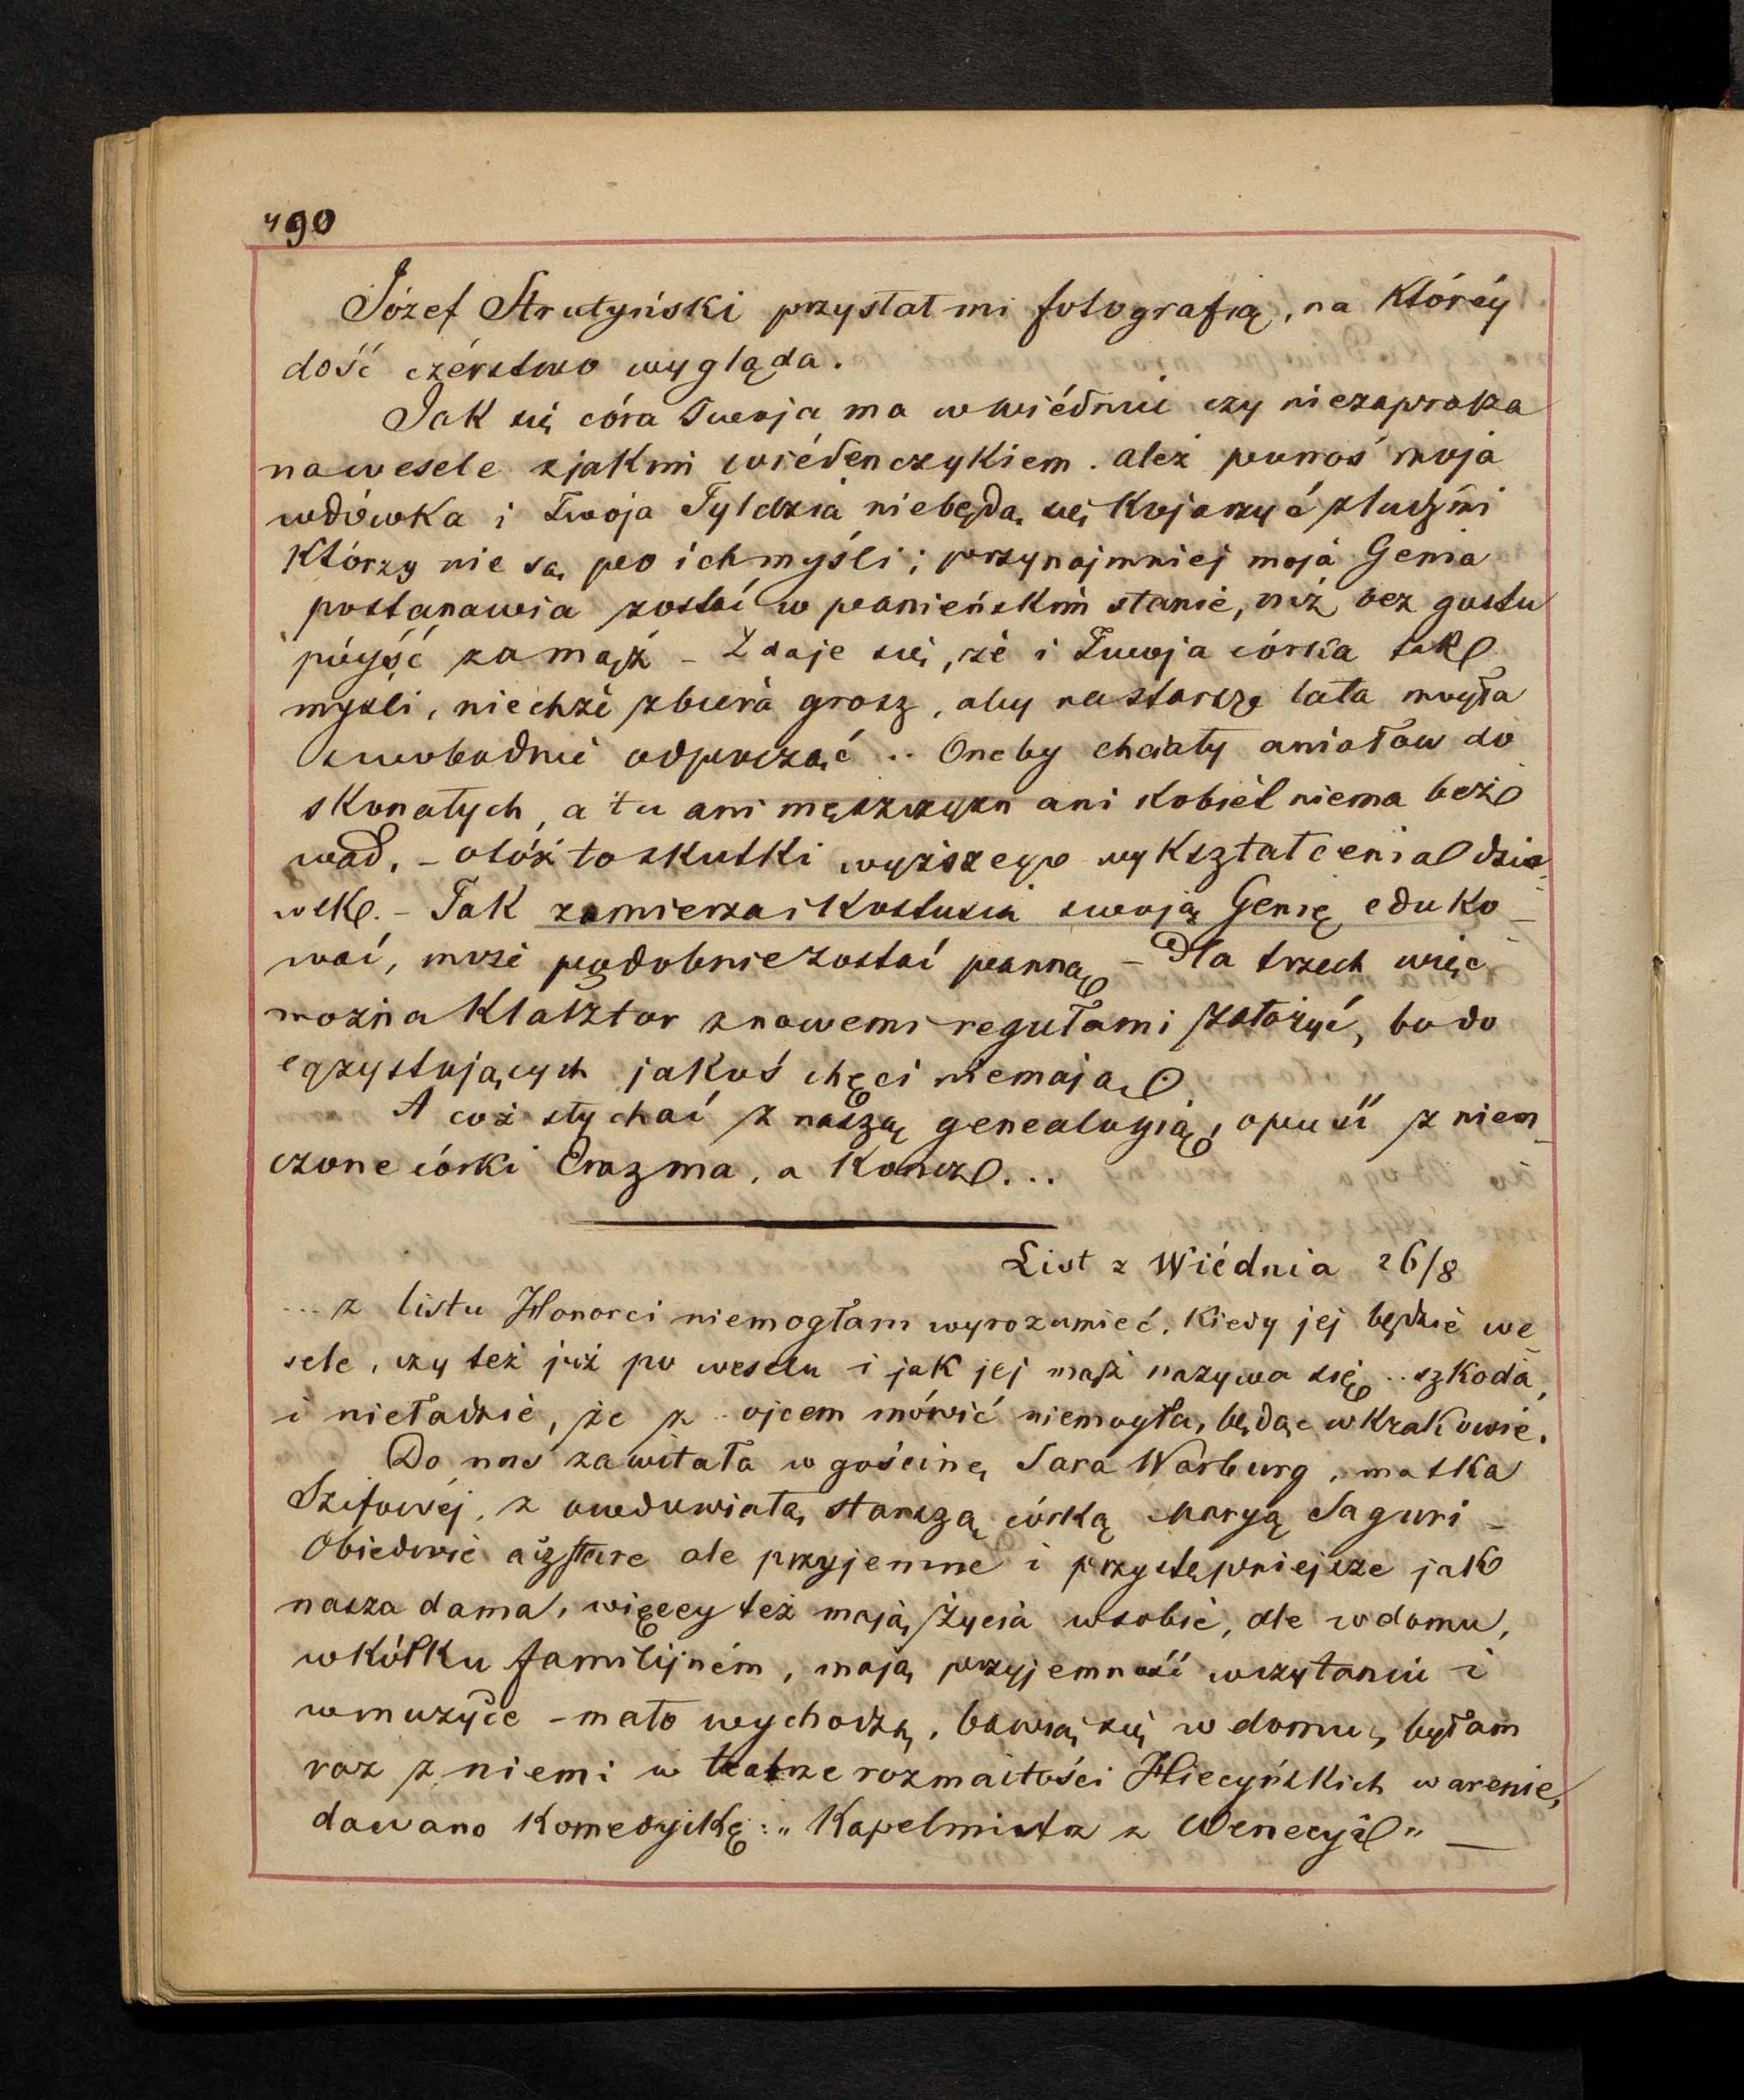 490
Józef Strutyński przysłał mi fotografią, na któréy
dość czérstwo wygląda.
Jak się córa Twoja ma w Wiédniu czy niezaprasza
na wesele z jakmi wiédenczykiem. ależ panoś moja
wdówka i Twoja Tyldzia niebędą się kojarzyć z ludźmi
którzy nie są po ich myśli; przynajmniej moja Genia
postanawia zostać w panieńskim stanie, niż bez gustu
pójść zamąż – Zdaje się, że i Twoja córka tak
mysli, niechże zbiera grosz, aby na starsze lata mogła
swobodnie odpocząć .. One by chciały aniołów do
skonałych, a tu ani męszczyzn ani kobiet niema bez
wad, – otóż to skutki wyższego wykształcenia dzie
wek. – Tak zamierza i Kostusia swoją Genię eduko_
wać, może podobnie zostać panną – Dla trzech więc
można klasztor z nowemi regułami założyć, bo do
egzystujących jakoś chęci niemają.
A coż słychać z naszą genealogią, opuść z niem_
czone córki Erazma, a kończ...
List z Wiédnia 26/8
... z listu Honorci niemogłam wyrozumieć, kiedy jej będzie we_
sele, czy też już po weselu i jak jej mąż nazywa się .. szkoda,
i nieładzie, że z ojcem mówić niemogła, będąc w Krakowie.
Do nas zawitała w gościnę Sara Warburg, matka
Szifowéj, z owdowiałą starszą córką Maryą Saguri –
Obiedwie acz stare ale przyjemne i przystępniejsze jak
nasza dama, więcey też mają życia w sobie, ale w domu,
w kółku familijném, mają przyjemność w czytaniu i
w muzyce – mało wychodzą, bawią się w domu, byłam
raz z niemi w teatrze rozmaitości Hiecyńskich w arenie,
dawano komedyjkę: „Kapelmistrz z Wenecyi" –